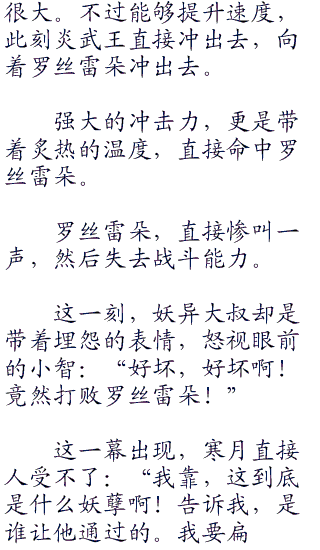 很大。不过能够提升速度，
此刻炎武王直接冲出去，向
着罗丝雷朵冲出去。
强大的冲击力，更是带
着炙热的温度，直接命中罗
丝雷朵。
罗丝雷朵，直接惨叫一
声，然后失去战斗能力。
这一刻，妖异大叔却是
带着埋怨的表情，怒视眼前
的小智：“好坏，好坏啊！
竟然打败罗丝雷朵！”
这一幕出现，寒月直接
人受不了：“我靠，这到底
是什么妖孽啊！告诉我，是
谁让他通过的。我要扁